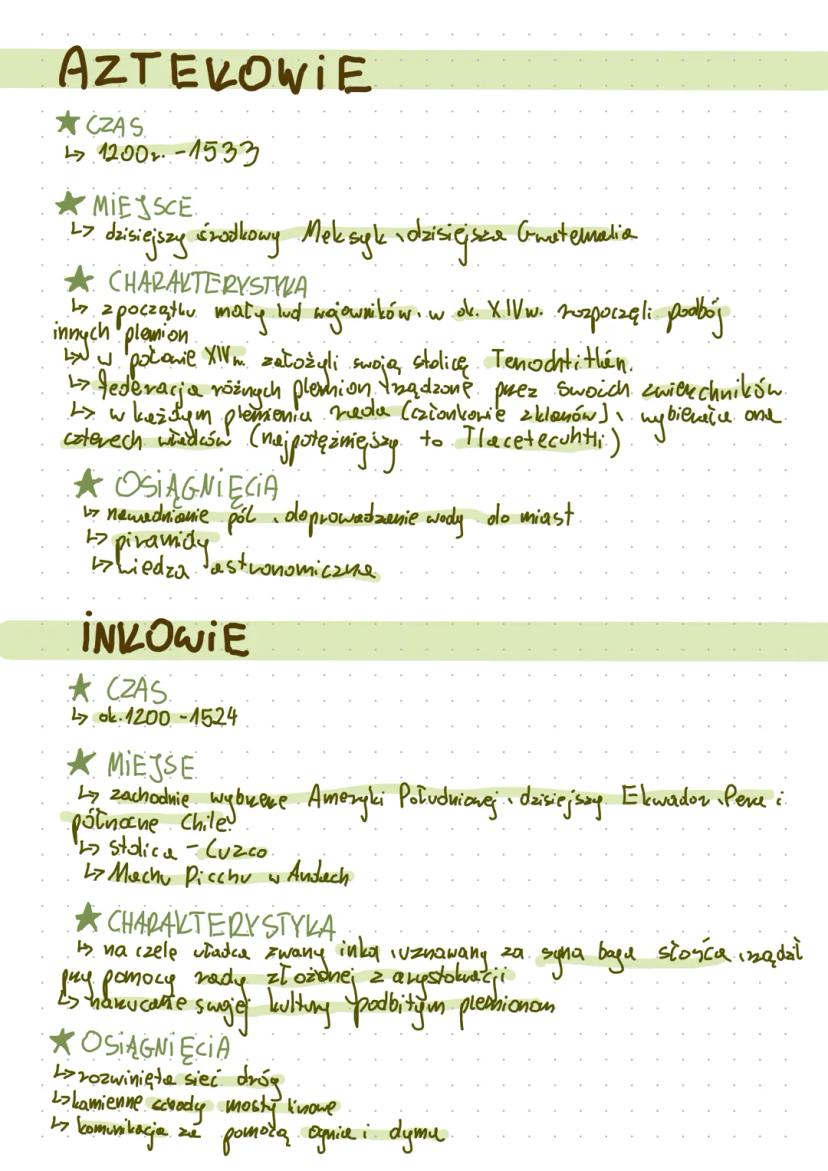 AZTEKOWIE
★ CZAS
↳ 1200r. - 1533
★ MIEJSCE
↳ dzisiejszy środkowy Meksyk, dzisiejsza Gwatemalia
★ CHARAKTERYSTYKA
↳ z początku mały lud wojowników, w ok. XIVw. rozpoczęli podbój
innych plemion
↳ w połowie XIVw. założyli swoją stolicę Tenochtitlán.
↳ federacja różnych plemion rządzone przez swoich zwierzchników
↳ w każdym plemieniu rada (członkowie z klanów), wybierała ona
czterech władców (najpotężniejszy to Tlacetecuhtli)
★ OSIĄGNIĘCIA
↳ nawodnianie pól, doprowadzenie wody do miast
↳ piramidy
↳ wiedza astronomiczna
INKOWIE
★ CZAS
↳ ok. 1200 - 1524
★ MIEJSE
↳ zachodnie wybrzeże Ameryki Południowej, dzisiejszy Ekwador, Peru i
północne Chile.
↳ stolica - Cuzco
↳ Machu Picchu w Andach
★ CHARAKTERYSTYKA
↳ na czele władca zwany inką, uznawany za syna boga słońca, rządził
przy pomocy rady złożonej z arystokracji
↳ narzucanie swojej kultury podbitym plemionom
★ OSIĄGNIĘCIA
↳ rozwinięta sieć dróg
↳ kamienne schody mosty linowe
↳ komunikacja za pomocą ognia i dymu